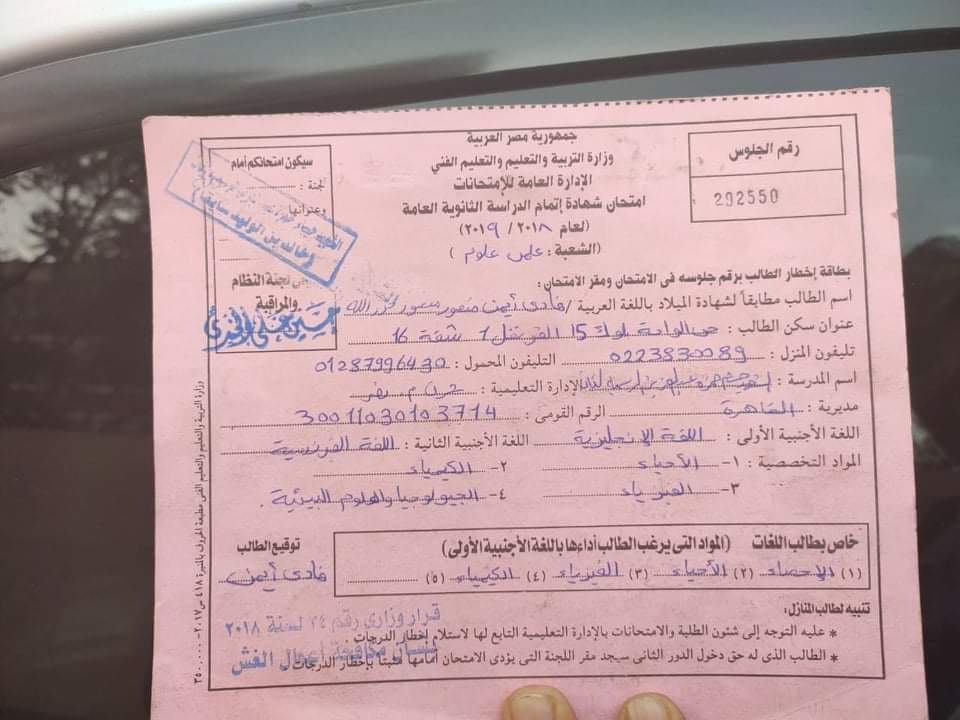 جمهورية مصر العربية
وزارة التربية والتعليم والتعليم الفني
الإدارة العامة للإمتحانات
امتحان شهادة إتمام الدراسة الثانوية العامة
(لعام ٢٠١٨ / ٢٠١٩)
(الشعبة : علمى علوم)
رقم الجلوس
202550
سيكون امتحانكم أمام
لجنة :
وعنوانها
خالد بن الوليد سابقا
لجنة النظام
والمراقبة
بطاقة إخطار الطالب برقم جلوسه فى الامتحان ومقر الامتحان :
اسم الطالب مطابقاً لشهادة الميلاد باللغة العربية / فادى أيمن منصور
عنوان سكن الطالب : حى الواحة بلوك 15 شقة 16
تليفون المنزل : 0223830089 التليفون المحمول : 01287996430
اسم المدرسة : الإدارة التعليمية :
مديرية : القاهرة الرقم القومى : 30011030103714
اللغة الأجنبية الأولى : اللغة الإنجليزية اللغة الأجنبية الثانية : اللغة الفرنسية
المواد التخصصية : ١- الأحياء ٢- الكيمياء
٣- الفيزياء ٤- الجيولوجيا والعلوم البيئية
خاص بطالب اللغات (المواد التى يرغب الطالب أداءها باللغة الأجنبية الأولى)
(١) الإحصاء (٢) الأحياء (٣) الفيزياء (٤) الكيمياء (٥)
توقيع الطالب
فادى أيمن
تنبيه لطالب المنازل :
* عليه التوجه إلى شئون الطلبة والامتحانات بالإدارة التعليمية التابع لها لاستلام إخطار الدرجات .
* الطالب الذى له حق دخول الدور الثانى سيجد مقر اللجنة التى يؤدى الامتحان أمامها مثبتاً بإخطار الدرجات .
قرار وزارى رقم ٣٤ لسنة ٢٠١٨
بشأن مكافحة أعمال الغش
وزارة التربية والتعليم والتعليم الفنى